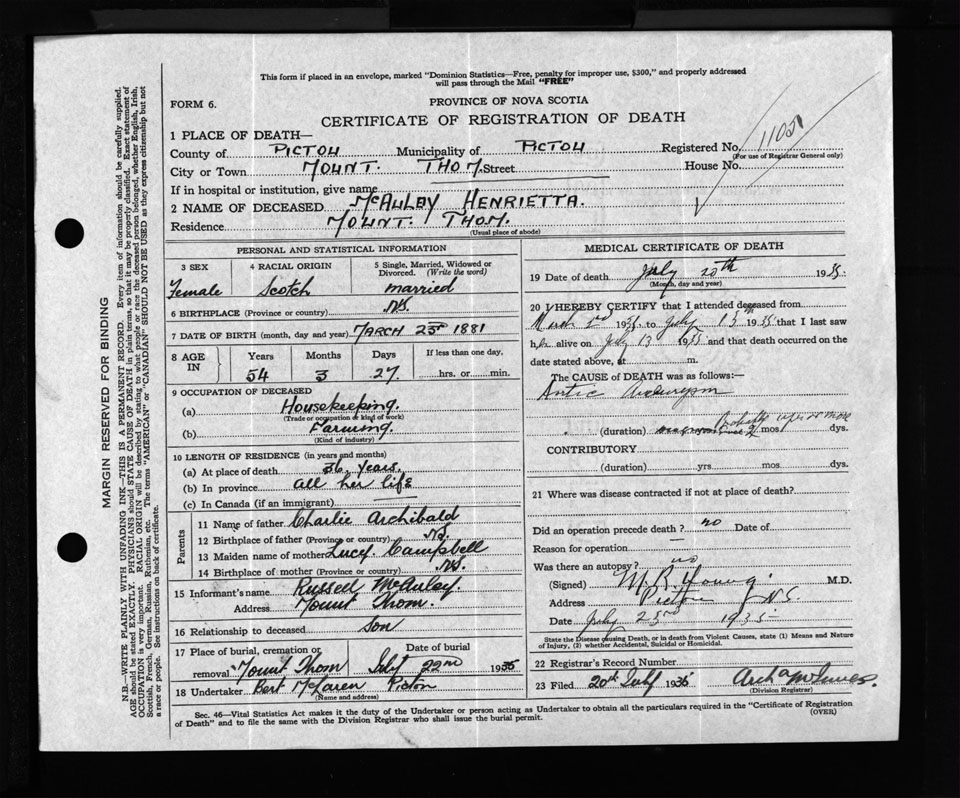 This form if placed in an envelope, marked "Dominion Statistics—Free, penalty for improper use, $300," and properly addressed
will pass through the Mail "FREE"
FORM 6.
PROVINCE OF NOVA SCOTIA
CERTIFICATE OF REGISTRATION OF DEATH
1 PLACE OF DEATH—
County of PICTOU Municipality of PICTOU Registered No.
(For use of Registrar General only)
City or Town MOUNT. THOM. Street House No.
If in hospital or institution, give name
2 NAME OF DECEASED McAULAY HENRIETTA.
Residence MOUNT. THOM.
(Usual place of abode)
PERSONAL AND STATISTICAL INFORMATION
3 SEX 4 RACIAL ORIGIN 5 Single, Married, Widowed or Divorced. (Write the word)
Female Scotch married
6 BIRTHPLACE (Province or country) N.S.
7 DATE OF BIRTH (month, day and year) MARCH 23rd 1881
8 AGE IN Years Months Days If less than one day.
54 3 27. hrs. or min.
9 OCCUPATION OF DECEASED
(a) Housekeeping.
(Trade or occupation or kind of work)
(b) Farming.
(Kind of industry)
10 LENGTH OF RESIDENCE (in years and months)
(a) At place of death 36 years.
(b) In province all her life
(c) In Canada (if an immigrant)
Parents
11 Name of father Charlie Archibald
12 Birthplace of father (Province or country) N.S.
13 Maiden name of mother Lucy Campbell
14 Birthplace of mother (Province or country) N.S.
15 Informant's name Russell McAuley
Address Mount Thom.
16 Relationship to deceased Son
17 Place of burial, cremation or removal Date of burial
Mount Thom July 22nd 1935
18 Undertaker Bert McLaren Pictou
(Name and address)
MEDICAL CERTIFICATE OF DEATH
19 Date of death July 20th 1935.
(Month, day and year)
20 I HEREBY CERTIFY that I attended deceased from
1935 to July 13 1935 that I last saw
her alive on July 13 1935 and that death occurred on the
date stated above, at m.
The CAUSE OF DEATH was as follows:—
Aortic
(duration) probably a yr or more mos dys.
CONTRIBUTORY
(duration) yrs mos dys.
21 Where was disease contracted if not at place of death?
Did an operation precede death? no Date of
Reason for operation —
Was there an autopsy? no
(Signed) M.R. Young. M.D.
Address Pictou N.S.
Date July 23rd 1935
State the Disease causing Death, or in death from Violent Causes, state (1) Means and Nature
of Injury, (2) whether Accidental, Suicidal or Homicidal.
22 Registrar's Record Number
23 Filed 20th July 1935
(Division Registrar)
Sec. 46—Vital Statistics Act makes it the duty of the Undertaker or person acting as Undertaker to obtain all the particulars required in the "Certificate of Registration
of Death" and to file the same with the Division Registrar who shall issue the burial permit.
(OVER)
MARGIN RESERVED FOR BINDING
N.B.—WRITE PLAINLY WITH UNFADING INK—THIS IS A PERMANENT RECORD. Every item of information should be carefully supplied.
AGE should be stated EXACTLY. PHYSICIANS should STATE CAUSE OF DEATH in plain terms, so that it may be properly classified. Exact statement of
OCCUPATION is very important. RACIAL ORIGIN will be described by stating to what people or race the deceased person belonged, whether English, Irish,
Scottish, French, German, Russian, Ruthenian, etc. The terms "AMERICAN" or "CANADIAN" SHOULD NOT BE USED as they express citizenship but not
a race or people. See instructions on back of certificate.